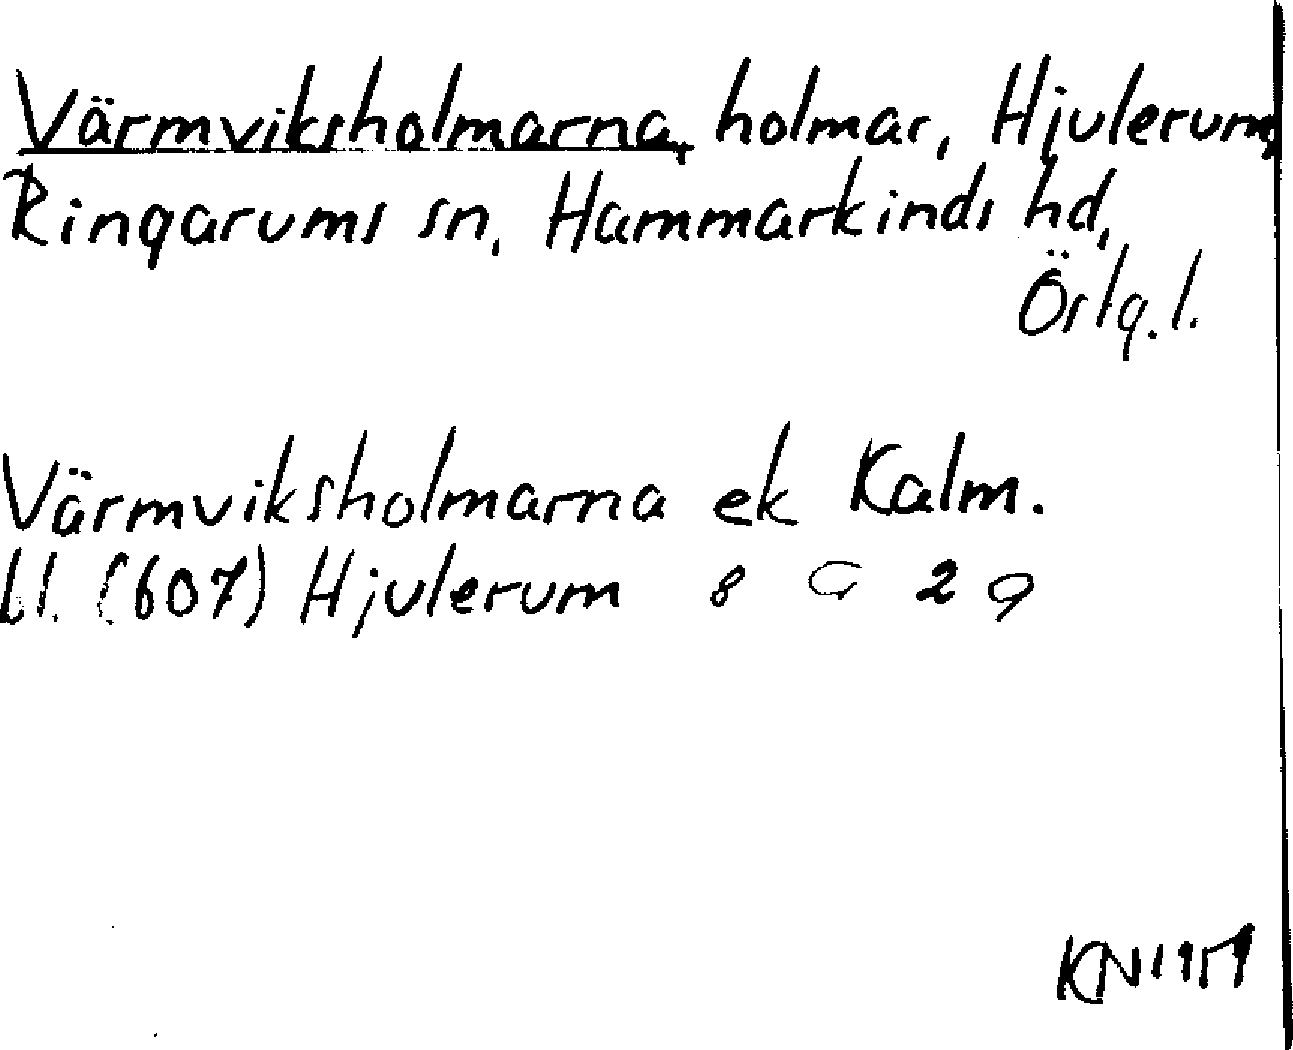 Värmviksholmarna, holmar, Hjulerum,
Ringarums sn, Hammarkinds hd,
Östg. l.
Värmviksholmarna ek Kalm.
bl. (607) Hjulerum 8 G 2 a
KN